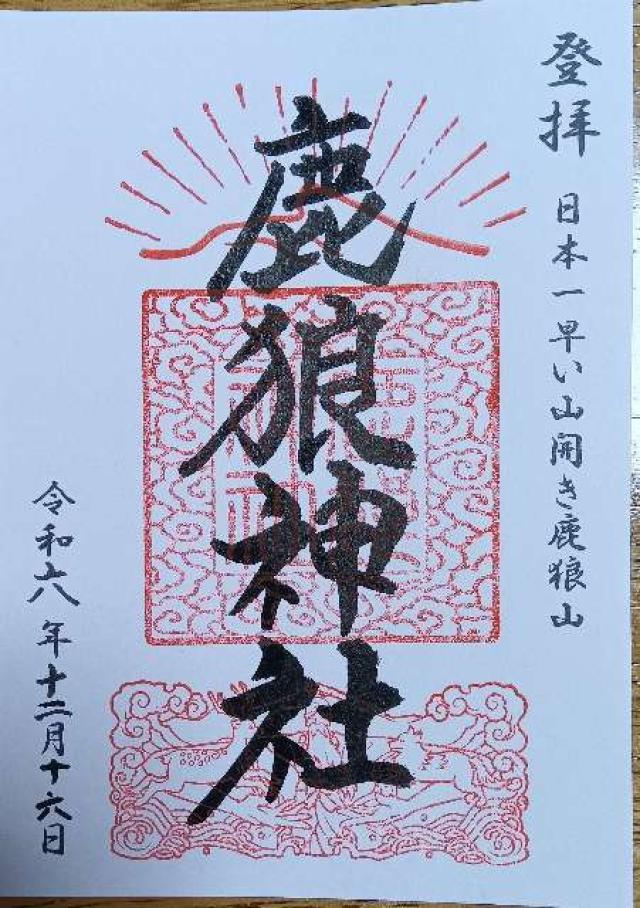 登拝
日本一早い山開き鹿狼山
鹿狼神社
令和六年十二月十六日